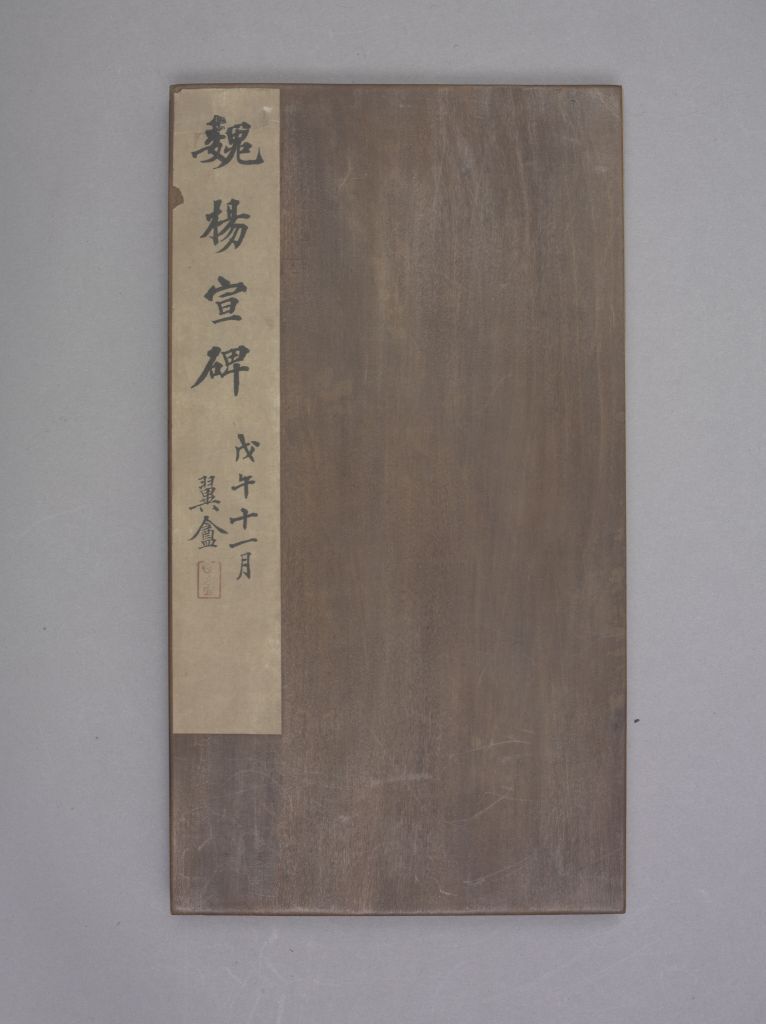 魏楊宣碑
戊午十一月
翼盦